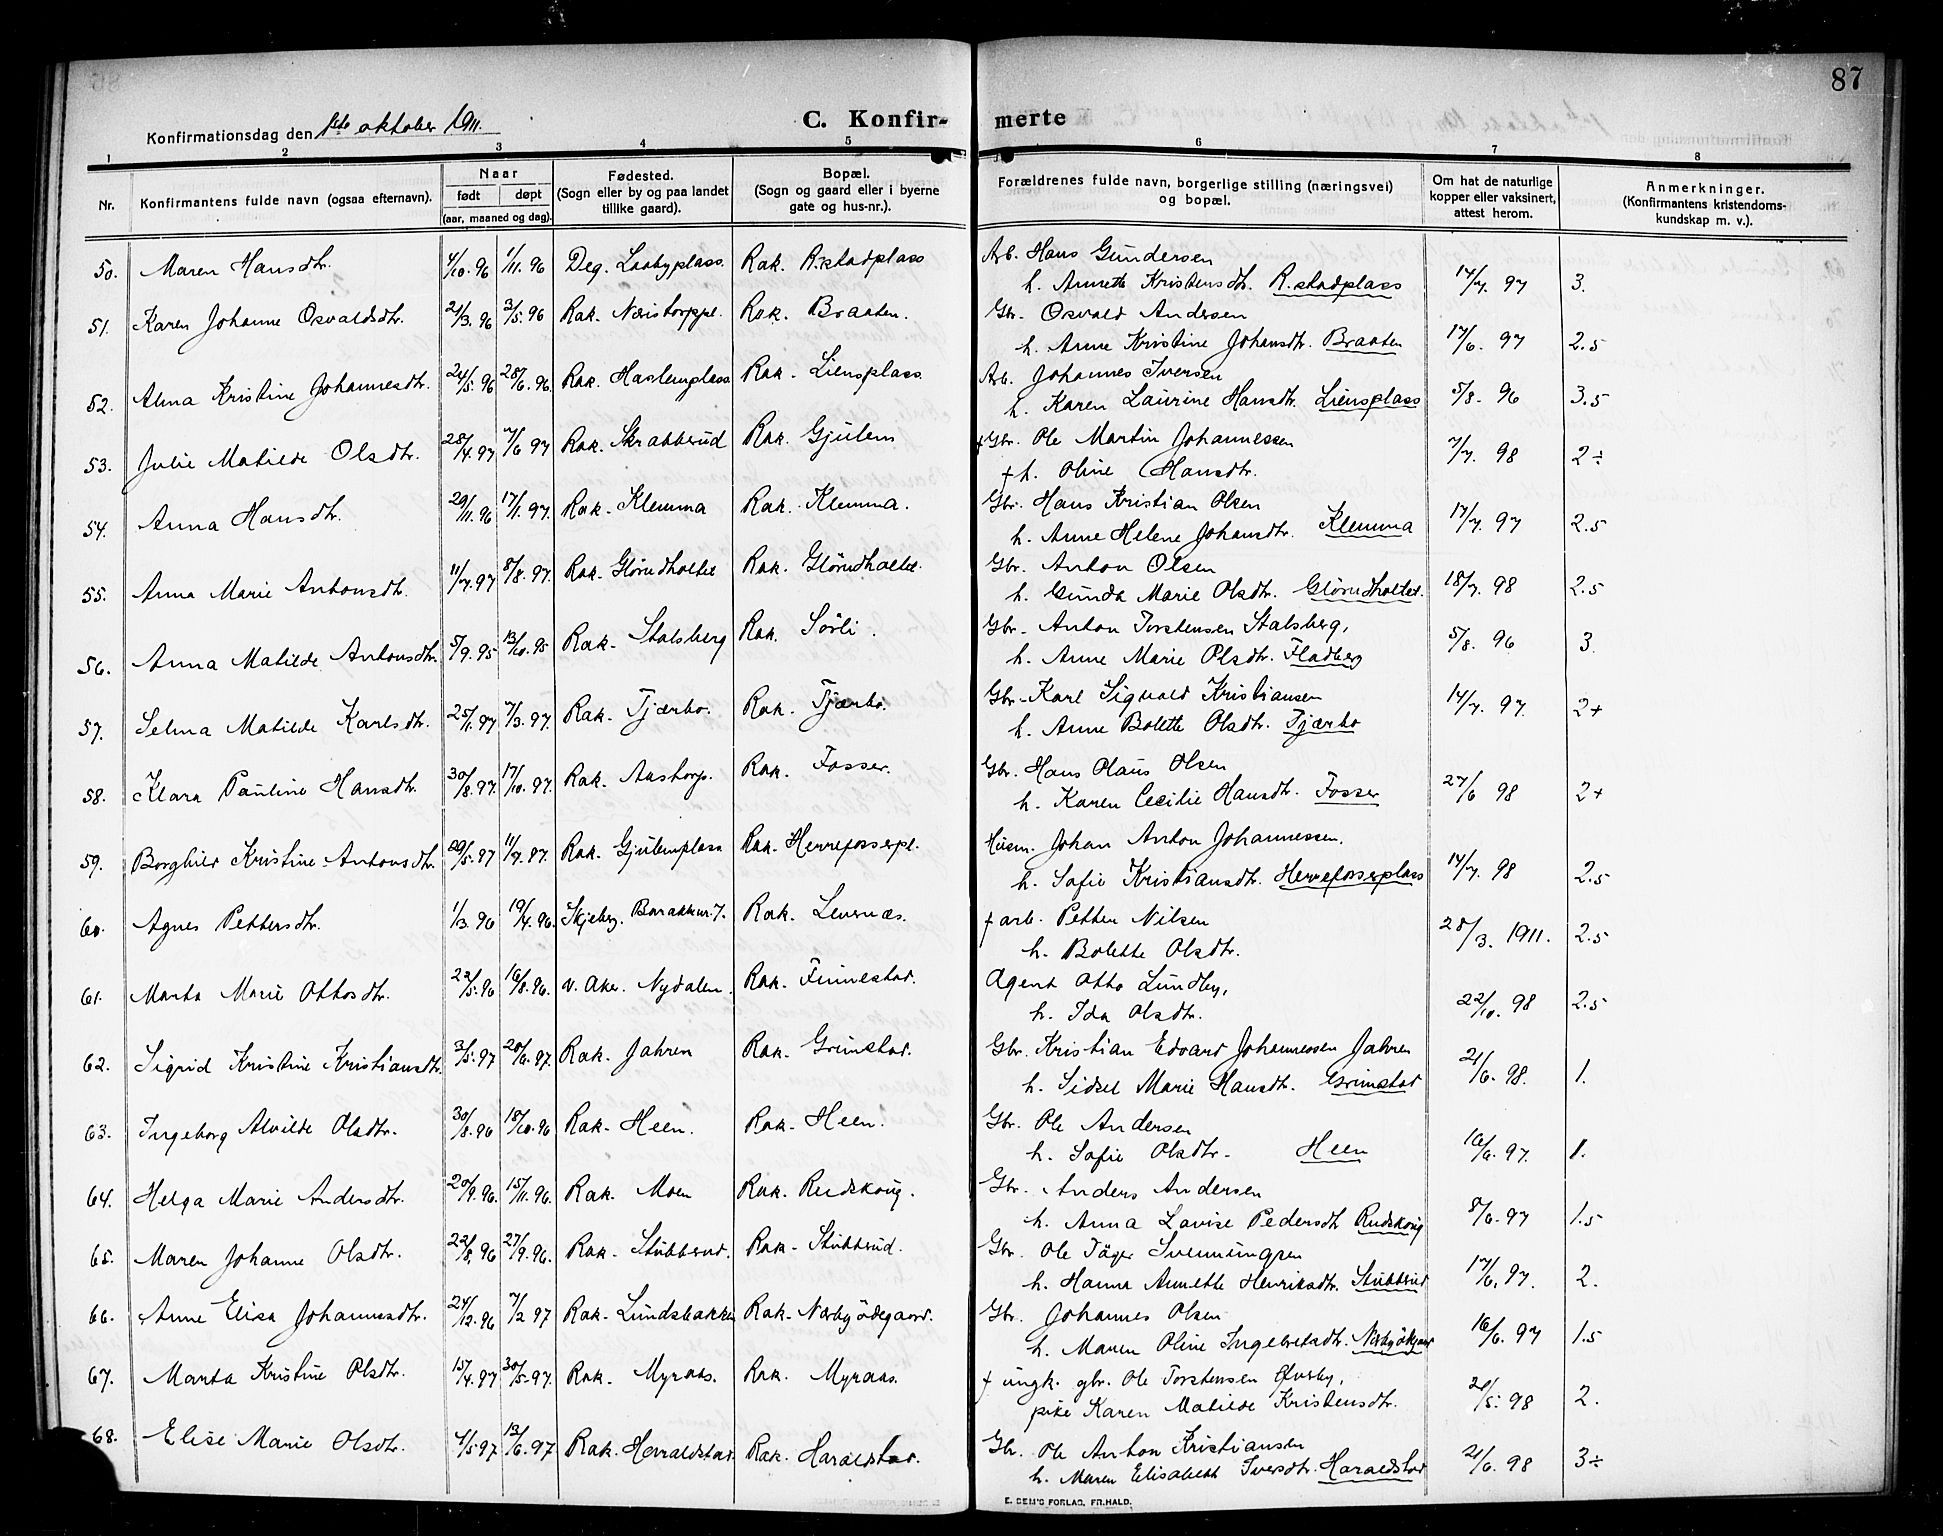 87
Konfirmationsdag den 1ste oktober 1911.
C. Konfirmerte
1 2 3 4 5 6 7 8
Nr. Konfirmantens fulde navn (ogsaa efternavn). Naar født døpt (aar, maaned og dag). Fødested. (Sogn eller by og paa landet tillike gaard). Bopæl. (Sogn og gaard eller i byerne gate og hus-nr.). Forældrenes fulde navn, borgerlige stilling (næringsvei) og bopæl. Om hat de naturlige kopper eller vaksinert, attest herom. Anmerkninger. (Konfirmantens kristendoms-kundskap m. v.).
50. Maren Hansdtr. 4/10. 96 1/11. 96 Deg. Laabyplass. Rak. R.stadplass Arb. Hans Gundersen
h. Annette Kristensdtr. R.stadplass 14/7. 97 3.
51. Karen Johanne Osvaldsdtr. 21/3. 96 3/5. 96 Rak. Næstorppl. Rak. Braaten. Gbr. Osvald Andersen
h. Anne Kristine Johansdtr. Braaten 17/6. 97 2.5
52. Alma Kristine Johannesdtr. 24/5. 96 28/6. 96. Rak. Haslemplass Rak. Liensplass. Arb. Johannes Iversen
h. Karen Laurine Hansdtr. Liensplass 5/8. 96 3.5
53. Julie Matilde Olsdtr. 28/4. 97 7/6 97 Rak. Skrabberud Rak. Gjulem †Gbr. Ole Martin Johannessen
† h. Oline Hansdtr. 7/7. 98 2÷
54. Anna Hansdtr. 29/11. 96 17/1. 97. Rak. Klemma Rak. Klemma. Gbr. Hans Kristian Olsen
h. Anne Helene Johansdtr. Klemma 17/7. 97 2.5
55. Anna Marie Antonsdtr. 11/7. 97 8/8. 97. Rak. Glörudholtet Rak. Glörudholtet. Gbr. Anton Olsen
h. Gunda Marie Olsdtr. Glörudholtet. 18/7. 98 2.5
56. Anna Matilde Antonsdtr. 5/9. 95 13/10. 95 Rak. Stalsberg Rak. Sörli. Gbr. Anton Torstensen Stalsberg,
h. Anne Marie Olsdtr. Fladberg 5/8. 96 3.
57. Selma Matilde Karlsdtr. 25/1. 97 7/3. 97. Rak. Tjærbo. Rak. Tjærbo. Gbr. Karl Sigvald Kristiansen
h. Anne Bolette Olsdtr. Tjærbo 14/7. 97. 2+
58. Klara Pauline Hansdtr. 30/8. 97. 17/10. 97. Rak. Aastorp. Rak. Fosser. Gbr. Hans Olaus Olsen
h. Karen Cecilie Hansdtr. Fosser 27/6 98 2+
59. Borghild Kristine Antonsdtr. 29/5. 97 11/7. 97. Rak. Gjulemplass Rak. Herrefosserpl. Husm. Johan Anton Johannessen.
h. Sofie Kristiansdtr. Herrefosserplass 14/7. 98 2.5
60. Agnes Pettersdtr. 1/3. 96 19/4. 96. Skjeberg, Barakkenr. 7. Rak. Levernæs. † arb. Petter Nilsen
h. Bolette Olsdtr. 28/3. 1911. 2.5
61. Marta Marie Ottosdtr. 22/5. 96 16/8. 96. v. Aker. Nydalen. Rak. Finnestad. Agent Otto Lundby,
h. Ida Olsdtr. 22/10. 98 2.5
62. Sigrid Kristine Kristiansdtr. 3/5. 97 20/6. 97. Rak. Jahren Rak. Grimstad. Gbr. Kristian Edvard Johannessen Jahren
h. Sidsel Marie Hansdtr. Grimstad 21/6. 98. 1.
63. Ingeborg Alvilde Olsdtr. 30/8. 96 18/10. 96 Rak. Heen. Rak. Heen. Gbr. Ole Andersen
h. Sofie Olsdtr. Heen 16/6. 97. 1.
64. Helga Marie Andersdtr. 20/9. 96. 15/11. 96. Rak. Moen Rak. Rudskoug. Gbr. Anders Andersen
h. Anna Lovise Pedersdtr Rudskoug 8/6. 97 1.5
65. Maren Johanne Olsdtr. 22/8. 96 27/9. 96. Rak. Stubberud. Rak. Stubberud. Gbr. Ole Jäger Svenningsen
h. Hanna Annette Henriksdtr. Stubberud 17/6. 97. 2.
66. Anne Elisa Johannesdtr. 24/12. 96 7/2 97 Rak. Lundsbakken Rak. Nærbyödegaard. Gbr. Johannes Olsen
h. Maren Oline Ingebretsdtr. 16/6. 97 1.5
67. Marta Kristine Olsdtr. 15/4. 97 30/5. 97. Rak. Myraas. Rak. Myraas. † ungk. gbr. Ole Torstensen Øvreby,
pike Karen Matilde Kristensdtr. 21/5. 98 2.
68. Elise Marie Olsdtr. 4/5 97 13/6. 97 Rak. Harraldstad. Rak. Haraldstad. Gbr. Ole Anton Kristiansen
h. Maren Elisabeth Iversdtr. Haraldstad 21/6. 98 3÷
E. SEM'S FORLAG, FR.HALD.